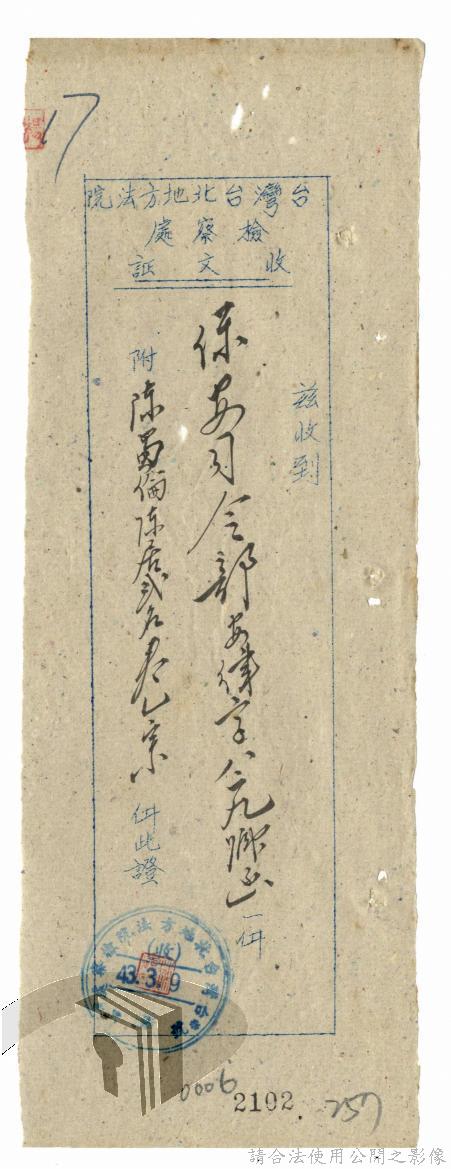 17
台灣台北地方法院
檢察處
收文証
茲收到
保安司令部安律字 一件
附陳 陳居貳名卷乙宗 件此證
台灣台北地方法院檢察處
(收)
43.3.9
號
0006
2102
257
請合法使用公開之影像